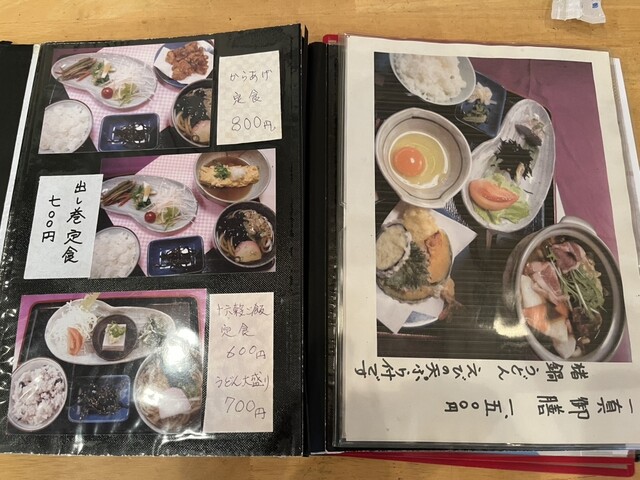 からあげ
定食
800円
出し巻定食
七〇〇円
十六穀ご飯
定食
600円
うどん大盛り
700円
一真御膳
一、五〇〇円
猪鍋うどん
えびの天ぷら付です